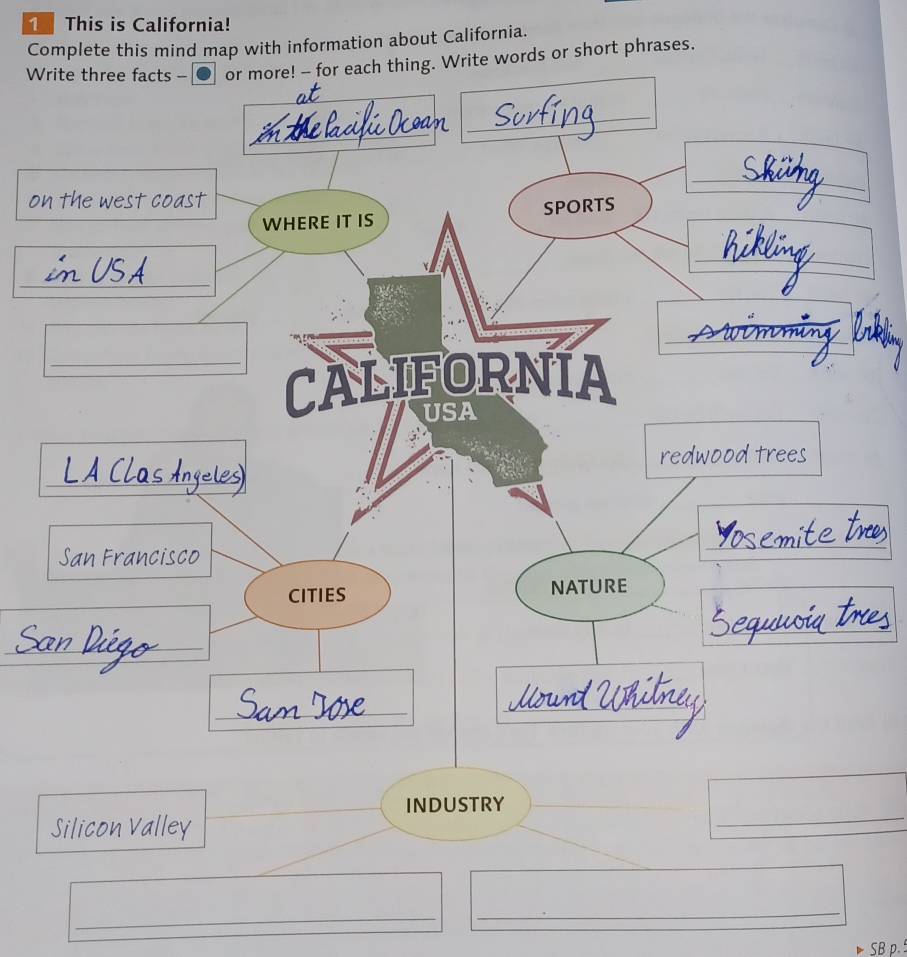 1 This is California!
Complete this mind map with information about California.
Write three facts – or more! – for each thing. Write words or short phrases.
at
in the Pacific Ocean
Surfing
Skiing
on the west coast
WHERE IT IS
SPORTS
in USA
swimming
CALIFORNIA
USA
LA (Los Angeles)
redwood trees
Yosemite trees
San Francisco
CITIES
NATURE
San Diego
Sequuoia trees
San Jose
Mount Whitney
INDUSTRY
Silicon Valley
SB p.